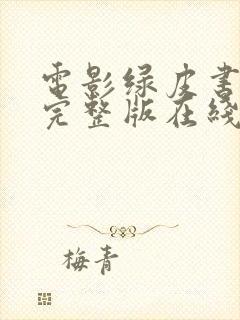 電影绿皮書
完整版在綫
梅青